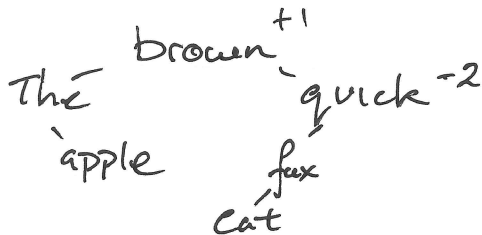 brown +1
The quick -2
apple fox
cat